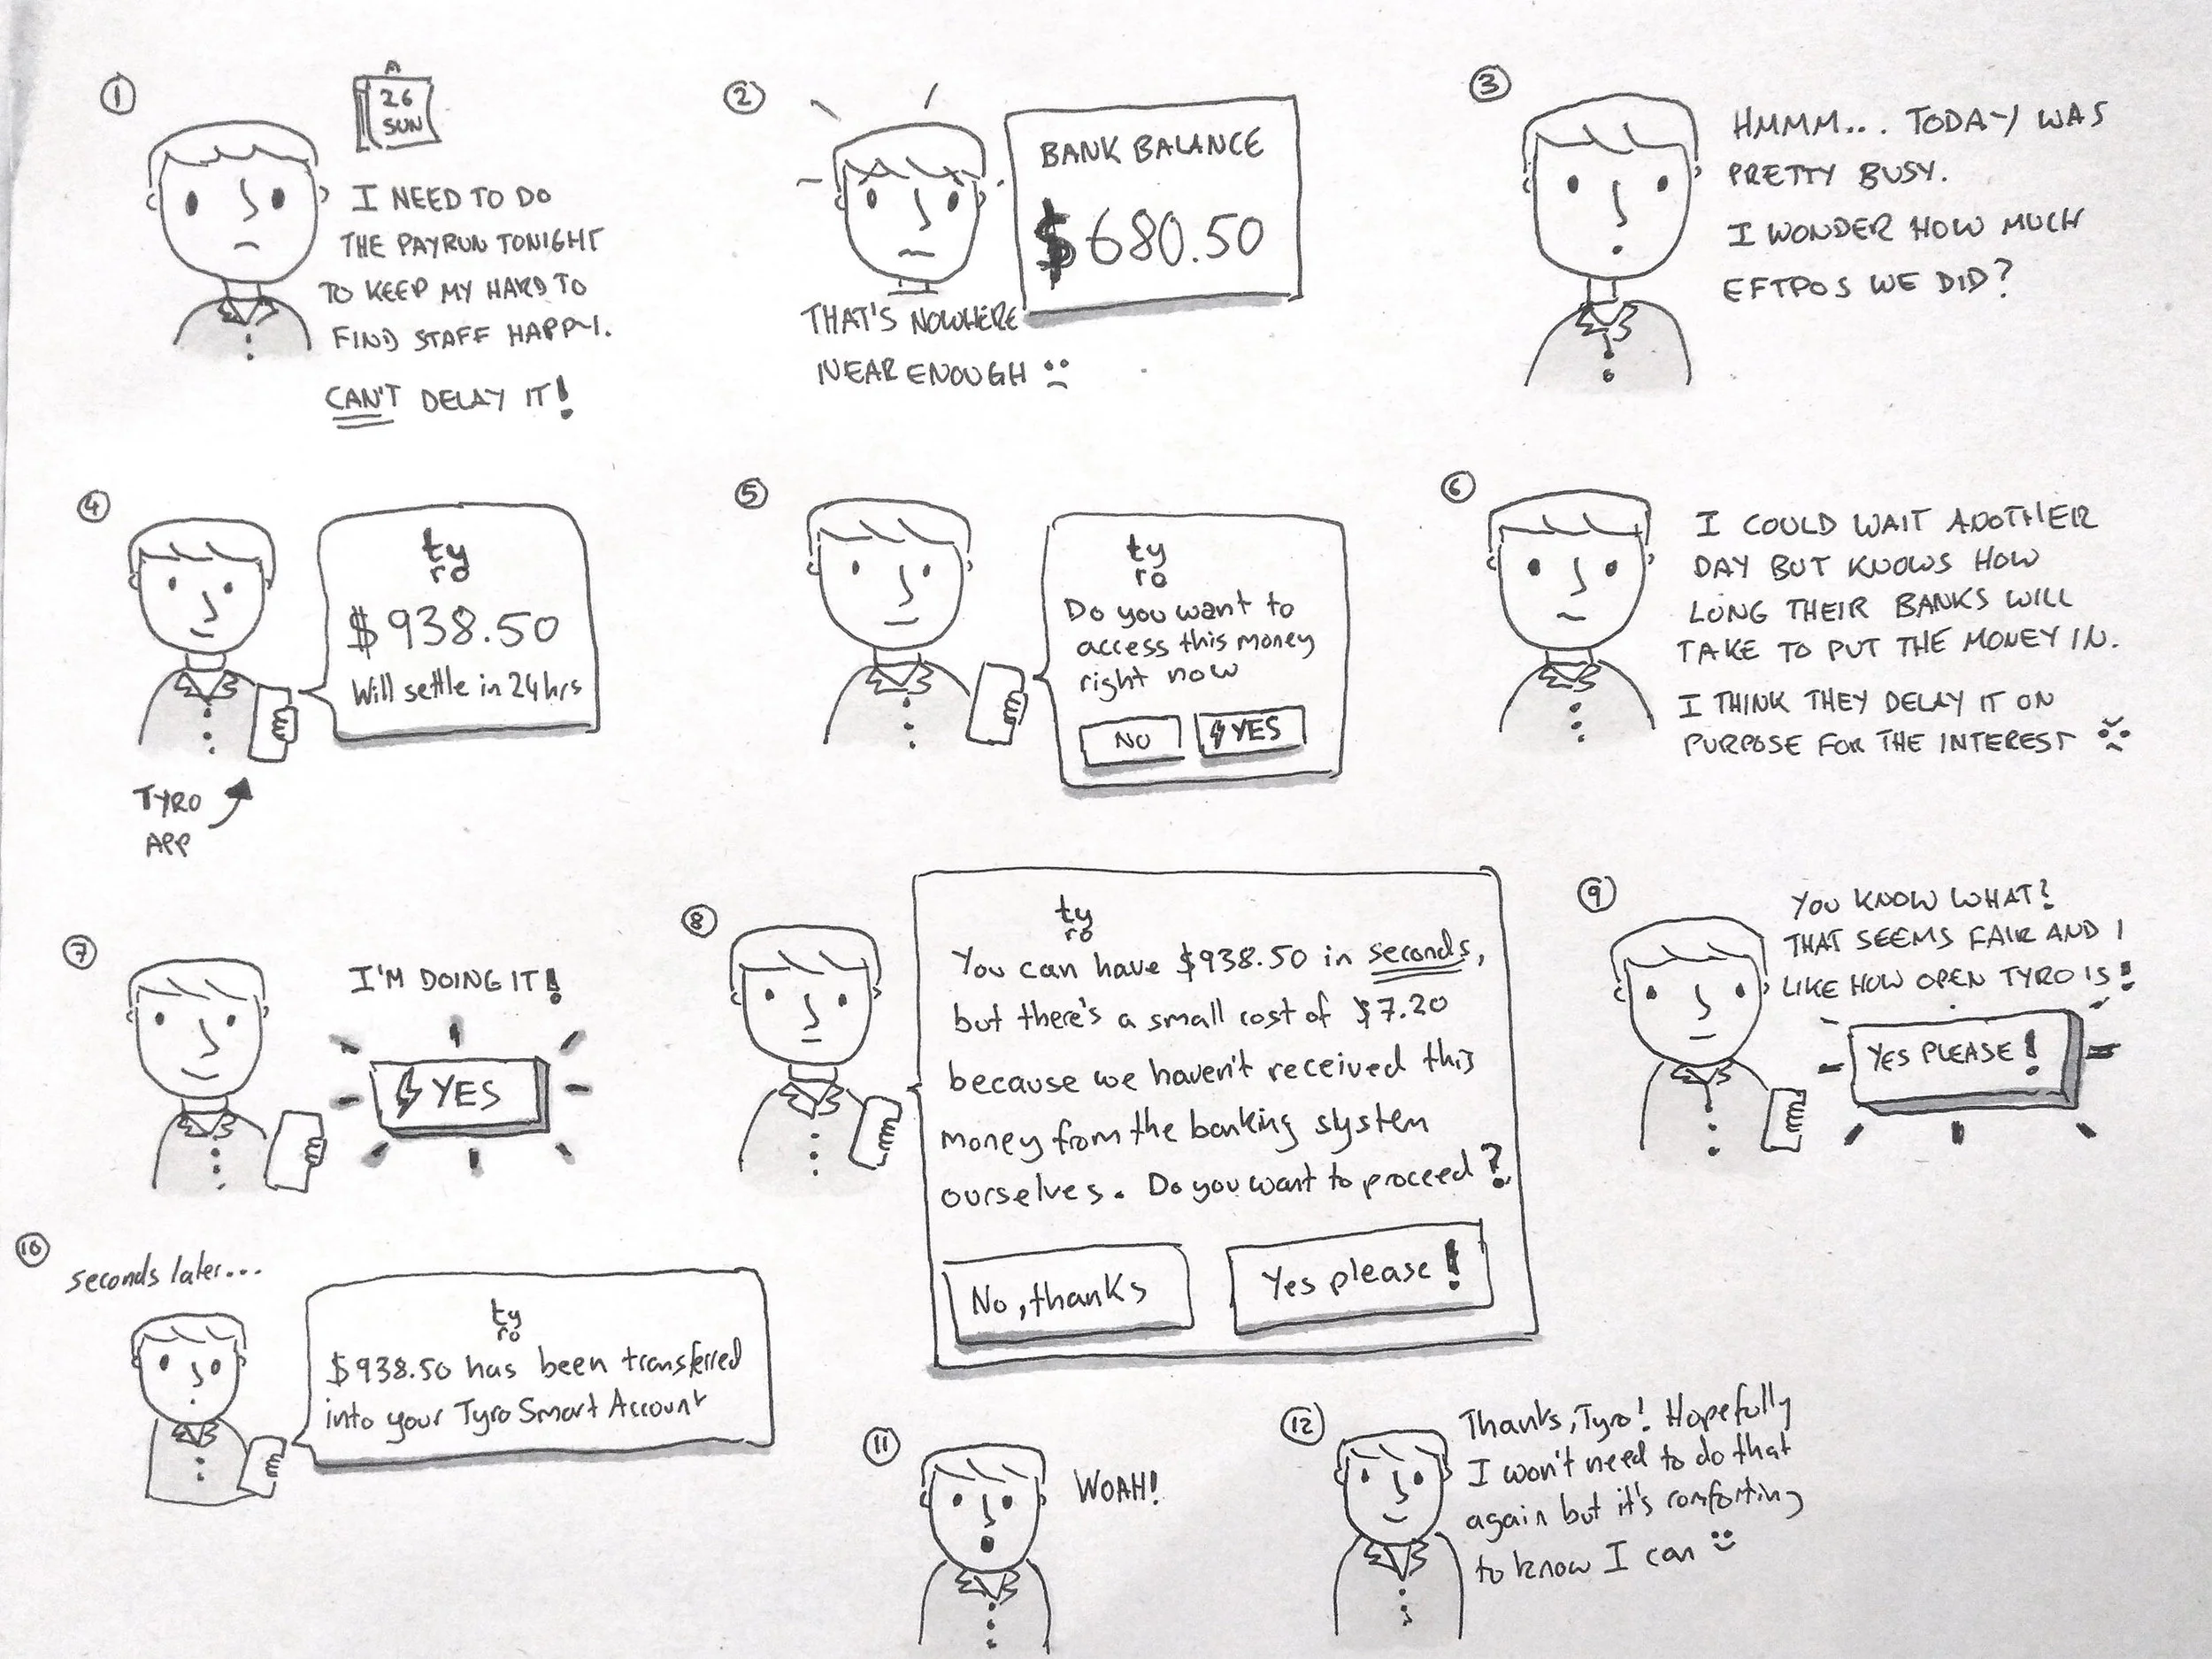 1
26
SUN
I NEED TO DO
THE PAYRUN TONIGHT
TO KEEP MY HARD TO
FIND STAFF HAPPY.
CAN'T DELAY IT!
2
BANK BALANCE
$680.50
THAT'S NOWHERE
NEAR ENOUGH
3
HMMM... TODAY WAS
PRETTY BUSY.
I WONDER HOW MUCH
EFTPOS WE DID?
4
ty
ro
$938.50
Will settle in 24hrs
TYRO
APP
5
ty
ro
Do you want to
access this money
right now
NO
YES
6
I COULD WAIT ANOTHER
DAY BUT KNOWS HOW
LONG THEIR BANKS WILL
TAKE TO PUT THE MONEY IN.
I THINK THEY DELAY IT ON
PURPOSE FOR THE INTEREST
7
I'M DOING IT!
YES
8
ty
ro
You can have $938.50 in seconds,
but there's a small cost of $7.20
because we haven't received this
money from the banking system
ourselves. Do you want to proceed?
No, thanks
Yes please!
9
YOU KNOW WHAT?
THAT SEEMS FAIR AND I
LIKE HOW OPEN TYRO IS!
YES PLEASE!
10
seconds later...
ty
ro
$938.50 has been transferred
into your Tyro Smart Account
11
WOAH!
12
Thanks, Tyro! Hopefully
I won't need to do that
again but it's comforting
to know I can